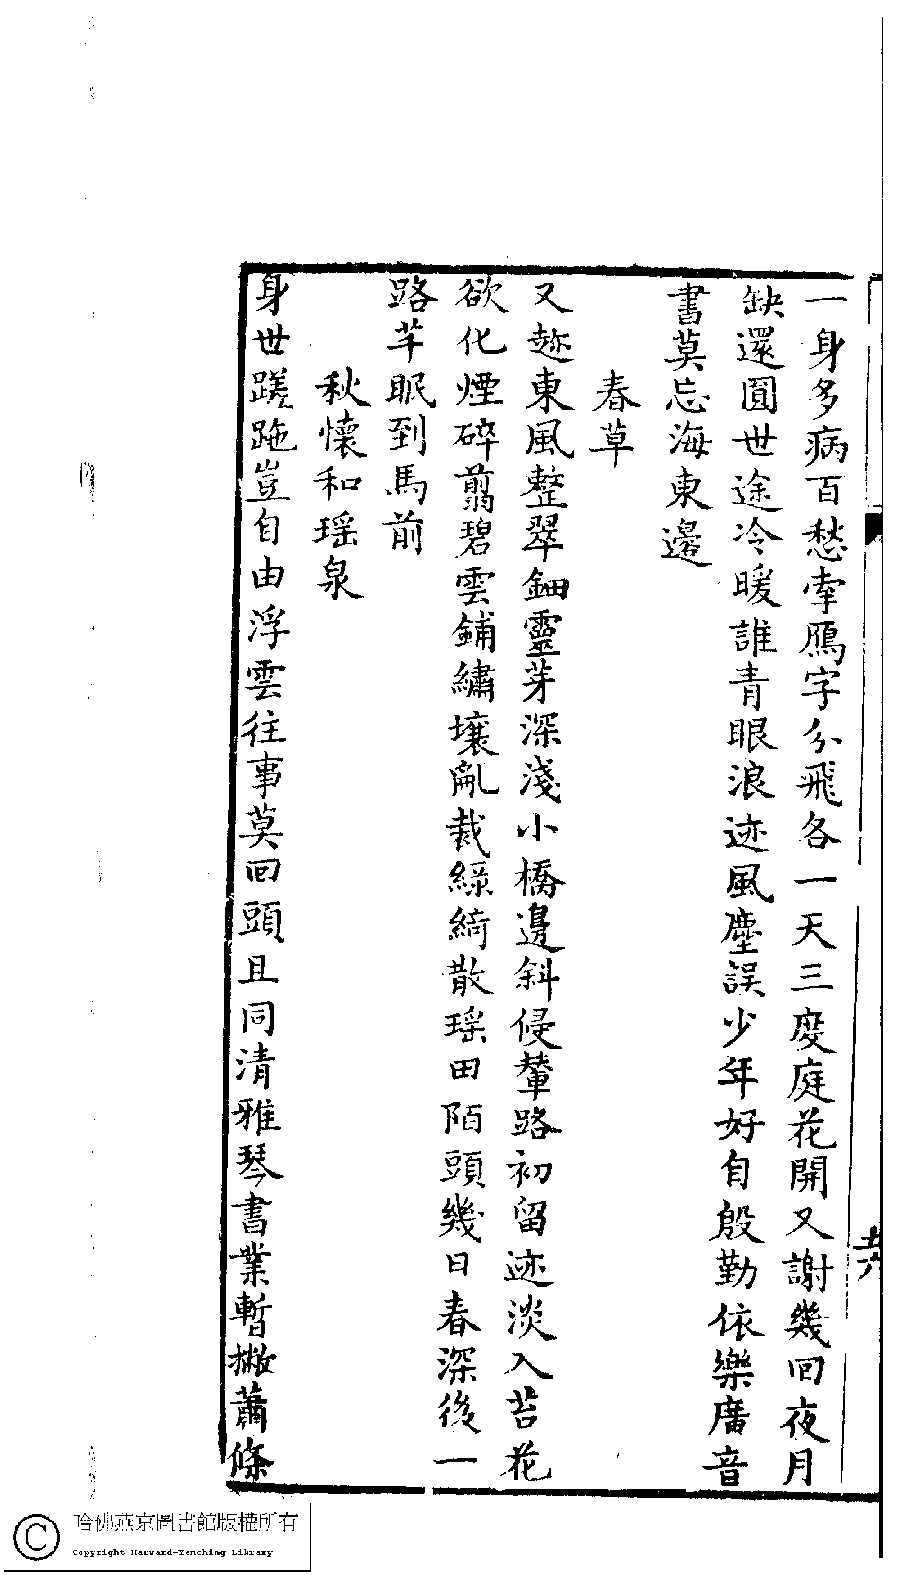 一身多病百愁牽鴈字分飛各一天三度庭花開又謝幾回夜月
缺還圓世途冷暖誰青眼浪迹風塵誤少年好自殷勤依樂廣音
書莫忘海東邊
春草
又趂東風整翠鈿靈芽深淺小橋邊斜侵輦路初留迹淡入苔花
欲化煙碎翦碧雲鋪繡壤亂裁綠綺散瑶田陌頭幾日春深後一
路芊眠到馬前
秋懷和瑶泉
身世蹉跎豈自由浮雲往事莫回頭且同清雅琴書業暫撇蕭條
哈佛燕京圖書館版權所有
Copyright Harvard-Yenching Library